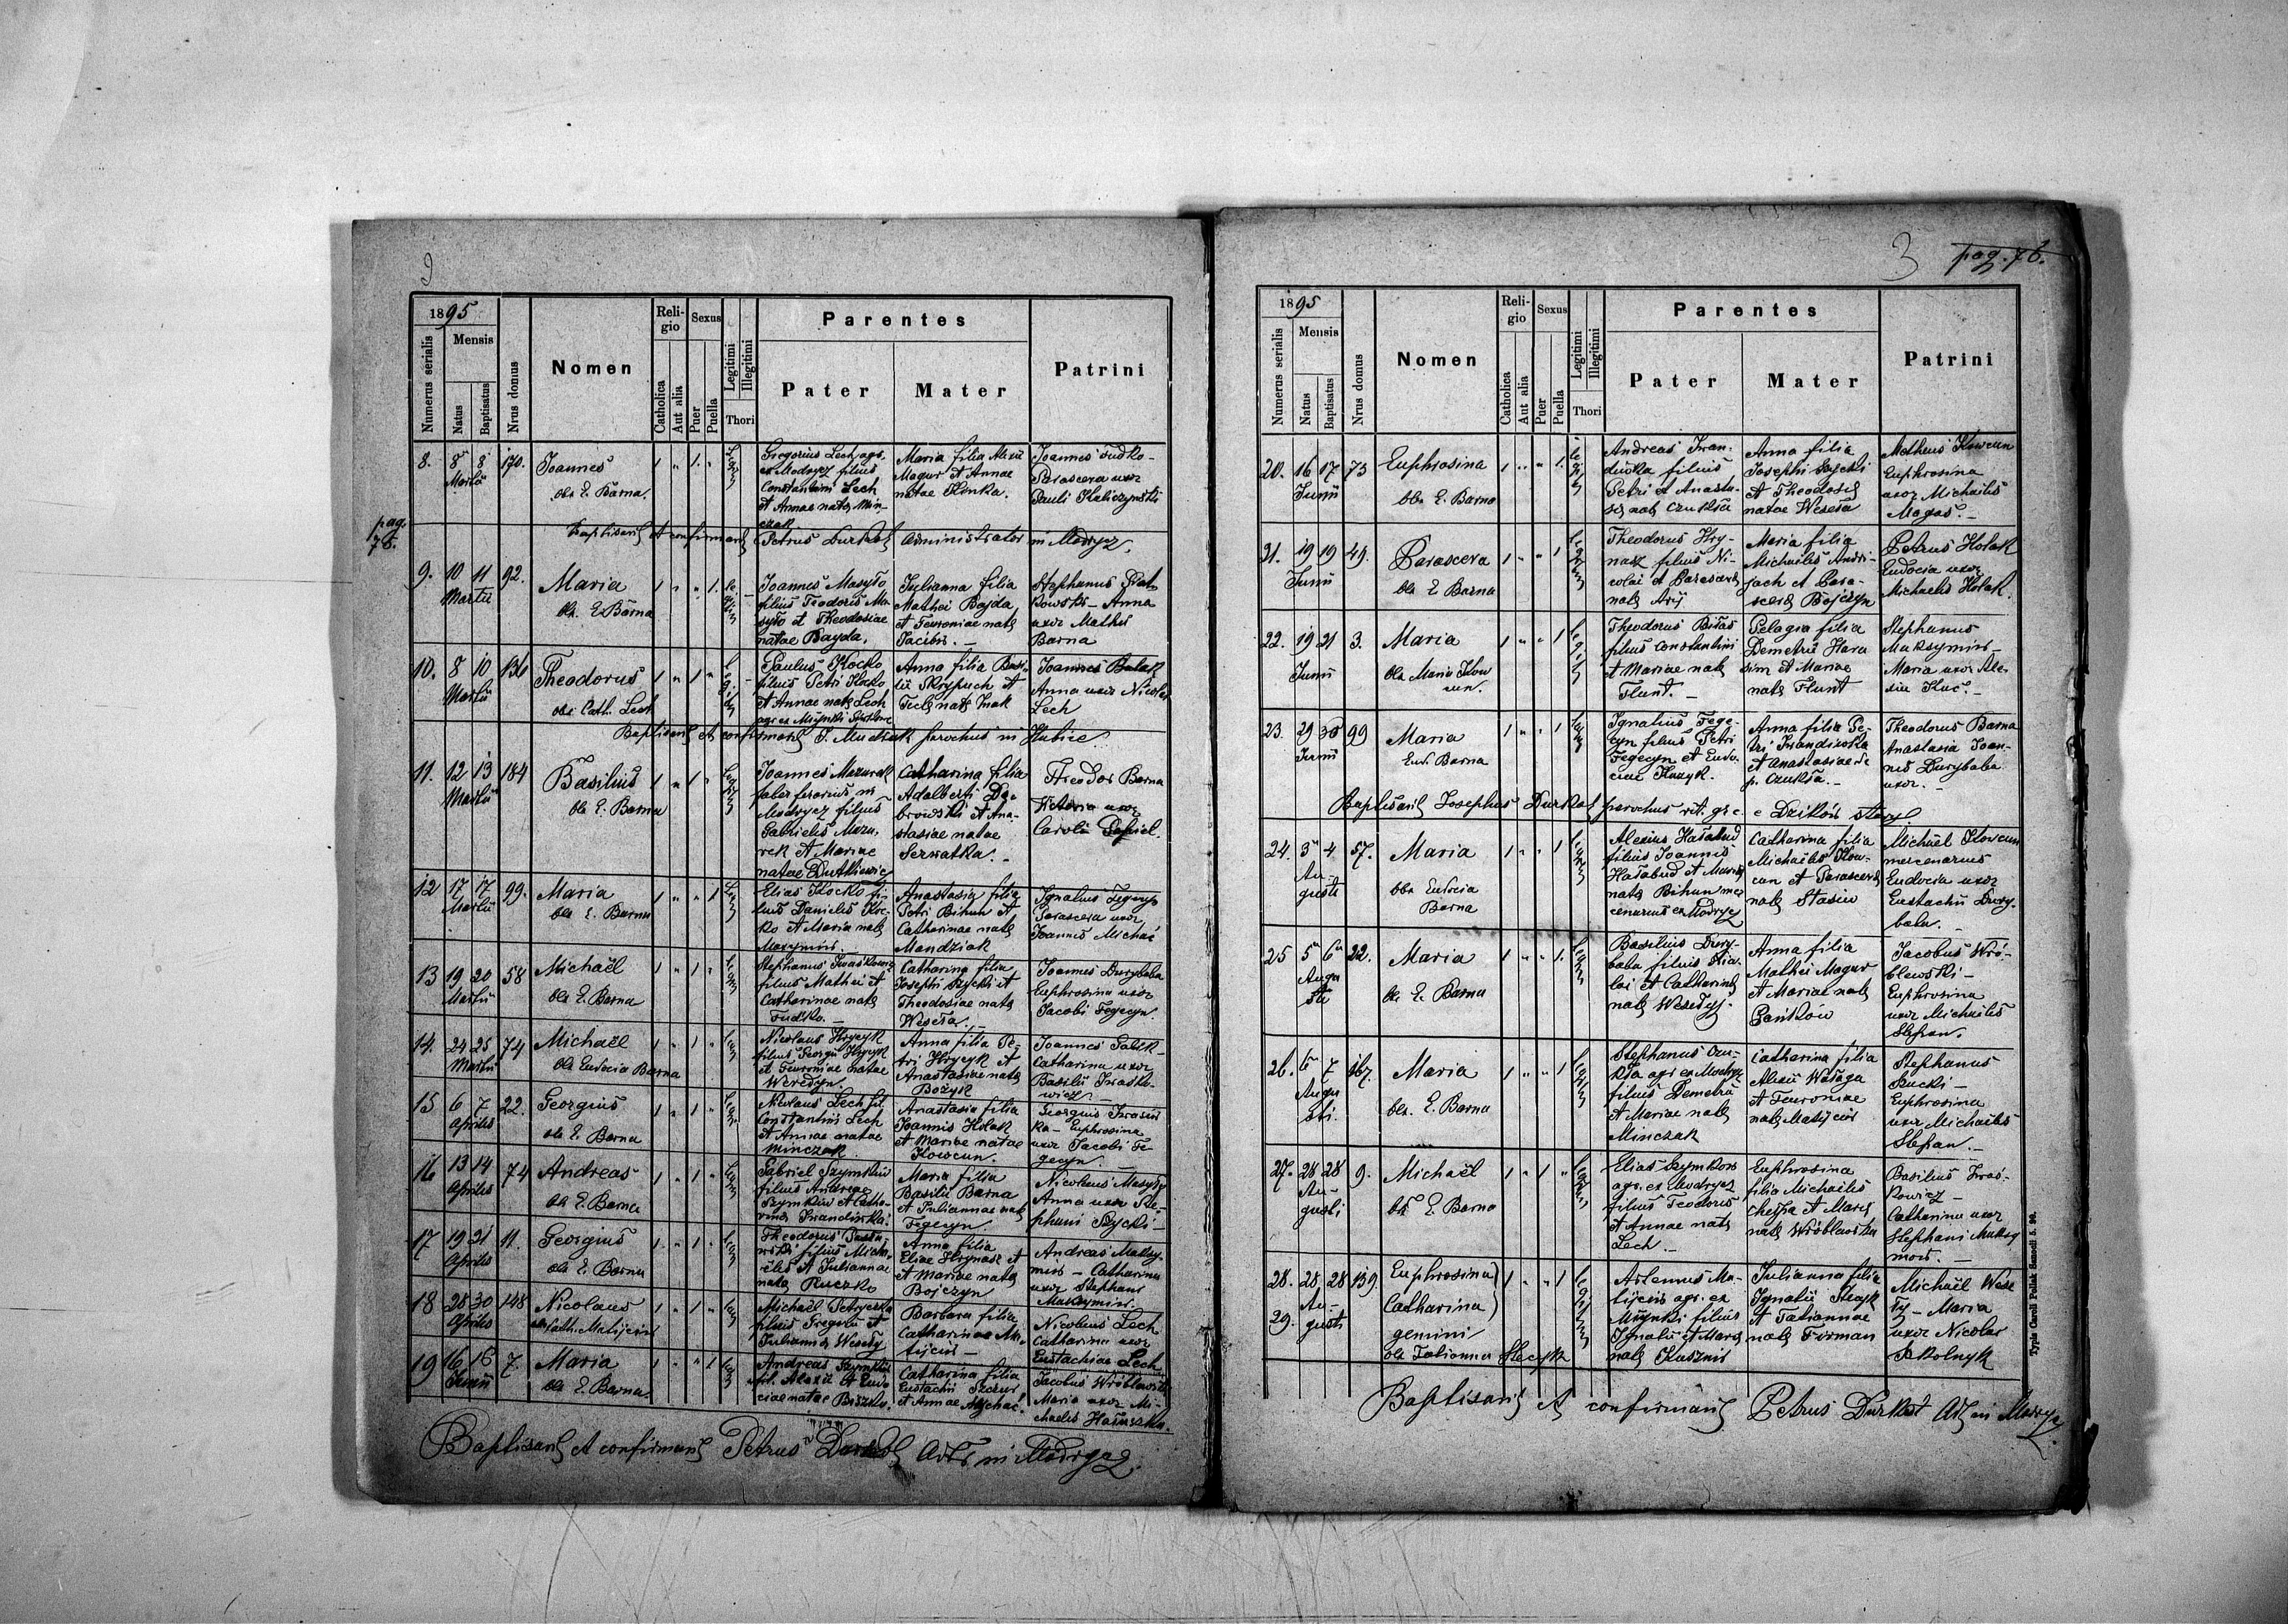 9
1895
Numerus serialis
Mensis
Natus
Baptisatus
Nrus domus
Nomen
Religio
Catholica
Aut alia
Sexus
Puer
Puella
Legitimi
Illegitimi
Thori
Parentes
Pater
Mater
Patrini
8. 8 8 Martii 170.
Joannes
obs. E. Barna.
Gregorius Lech agr.
ex Modrycz filius
Constantini Lech
et Annae natae Min-
czak
Maria filia Alexii
Magur et Annae
natae
Joannes Fudko -
Parasceva uxor
Pauli
pag.
Baptisavit et confirmavit Petrus Durkot Administrator in Modrycz.
9. 10 11 Martii 92.
Maria
obs. E. Barna
Joannes Masyto
filius Teodoris Ma-
syto et Theodosiae
natae Bayda.
Julianna filia
Mathei Bajda
et Fevroniae natae
Stephanus
Anna
uxor Mathei
Barna
10. 8 10 Martii 136
Theodorus
obs. Cath. Lech
Paulus Kocko
filius Petri Kocko
et Annae natae Lech
Anna filia Basi-
lii Skrypuch et
Teclae natae
Joannes
Anna uxor Nicolai
Lech
Baptisavit et confirmavit parochus in Hubice
11. 12 13 Martii 184
Basilius
obs. E. Barna
Joannes Mazurek
faber ferarius in
Modrycz filius
Gabrielis Mazu-
rek et Mariae
natae Dutkiewicz
Catharina filia
Adalberti Dą-
browski et Ana-
stasiae natae
Serwatka. -
Theodor Barna
Victoria uxor
Caroli
12 17 17 Martii 99.
Maria
obs. E. Barna
Elias Kocko fi-
lius Danielis Koc-
ko et Maria natae
Maxymiw.
Anastasia filia
Petri Bihun et
Catharinae natae
Mandziak
Ignatius Fegecyn
Parasceva uxor
Joannis Michac
13 19 20 Martii 58
Michaël
obs. E. Barna
Stephanus Iwaśkowicz
filius Mathei et
Catharinae natae
Fudko. -
Catharina filia
Josephi Szycki et
Theodosiae natae
Weseła. -
Joannes Durybaba
Euphrosina uxor
Jacobi Fegecyn.
14. 24 25 Martii 74
Michaël
obs. Eudocia Barna
Nicolaus Hrycyk
filius Georgii Hrycyk
et Fevroniae natae
Weredyn.
Anna filia Pe-
tri Hrycyk et
Anastasiae natae
Bożyk
Joannes
Catharina uxor
Basilii Iwaśko-
wicz -
15 6 7 Aprilis 22.
Georgius
obs. E. Barna
Nicolaus Lech fil.
Constantini Lech
et Annae natae
Minczak.
Anastasia filia
Joannis Holak
et Mariae natae
Kowcun.
Georgius
Euphrosina
uxor Jacobi Fe-
gecyn. -
16 13 14 Aprilis 74
Andreas
obs. E. Barna
Gabriel Szymkiw
filius Andreae
Szymkiw et Catha-
rinae
Maria filia
Basilii Barna
et Juliannae natae
Fegecyn.
Nicolaus Masyto
Anna uxor Ste-
phani Szycki -
17 19 21 Aprilis 11.
Georgius
obs. E. Barna
Theodorus
filius Micha-
elis et Juliannae
natae Ruczko
Anna filia
Eliae Hrynasz et
et Mariae natae
Bojczyn
Andreas Maksy-
miw - Catharina
uxor Stephani
Maksymiw.
18 28 30 Aprilis 148
Nicolaus
obs. Cath. Matijciw
Michaël Petryczka
filius Gregorii et
Julianna Weseły
Barbara filia
Catharinae Ma-
tijciw -
Nicolaus Lech
Catharina uxor
Eustachiae Lech
19 16 16 Junii 7.
Maria
obs. E. Barna.
Andreas Szymkiw
fil. Alexii et Eudo-
ciae natae
Catharina filia
Eustachii Szczur
et Annae
Jacobus Wróblewski
Maria uxor Mi-
chaelis
Baptisavit et confirmavit Petrus Durkot Adm. in Modrycz.
3 pag. 76.
1895
Numerus serialis
Mensis
Natus
Baptisatus
Nrus domus
Nomen
Religio
Catholica
Aut alia
Sexus
Puer
Puella
Legitimi
Illegitimi
Thori
Parentes
Pater
Mater
Patrini
20. 16 17 Junii 73
Euphrosina
obs. E. Barna
Andreas Iwan-
diwka filius
Petri et Anasta-
siae natae Czukła
Anna filia
Josephi Szycki
et Theodosiae
natae Weseła
Matheus Kowcun
Euphrosina
uxor Michaëlis
Magas. -
21. 19 19 Junii 49.
Parasceva
obs. E. Barna
Theodorus Hry-
nasz filius Ni-
colai et Parascevae
natae
Maria filia
Michaëlis Andri-
jach et Para-
scevae Bojczyn
Petrus Holak
Eudocia uxor
Michaelis Holak.
22. 19 21 Junii 3.
Maria
obs. Maria Kow
cun.
Theodorus Biłas
filius Constantini
et Mariae natae
Flunt. -
Pelagia filia
Demetrii Hara
sim et Mariae
natae Flunt
Stephanus
Maksymiw -
Maria uxor Ale-
xiu Kuc. -
23. 29 30 Junii 99
Maria
Eud. Barna
Ignatius Fege-
cyn filius Petri
Fegecyn et Eudo-
ciae
Anna filia Pe-
tri Iwandiwka
et Anastasiae de
p. Czukła. -
Theodorus Barna
Anastasia Joan-
nis Durybaba
uxor. -
Baptisavit Josephus Durkot parochus rit. gr. c. e Dzików stary.
24. 3 4 Augusti 57.
Maria
obs. Eudocia
Barna
Alexius Hałabud
filius Joannis
Hałabud et Mariae
natae Bihun mer
cenarius ex Modrycz
Catharina filia
Michaëlis Kow-
cun et Parascevae
natae Stasiw
Michaël Kowcun
mercenarius
Eudocia uxor
Eustachii Dury-
baba. -
25 5 6 Augusti 22.
Maria
obs. E. Barna
Basilius Dury-
baba filius Nico-
lai et Catharinae
natae Weseły.
Anna filia
Mathei Magur
et Mariae natae
Pańków
Jacobus Wró-
blewski -
Euphrosina
uxor Michaëlis
Stefan.
26. 6 7 Augusti 167.
Maria
obs. E. Barna
Stephanus Czu-
kła agr. ex Modrycz
filius Demetrii
et Mariae natae
Minczak
Catharina filia
Alexii Wałaga
et Fevroniae
natae Matijciw
Stephanus
Szucki -
Euphrosina
uxor Michaëlis
Stefan. -
27. 28 28 Augusti 9.
Michaël
obs. E. Barna
Elias Szymków
agr. ex Modrycz
filius Teodoris
et Annae natae
Lech. -
Euphrosina
filia Michaëlis
et Mariae
natae Wróblewska
Basilius Iwaś-
kowicz -
Catharina uxor
Stephani Maksy
mów. -
28. 28 28 Augusti 139.
29.
Euphrosina
Catharina
gemini
obs. Tatianna Stecyk
Artemus Ma-
tijciw agr. ex
Młynki filius
Ignatii et Mariae
natae Kusznir
Julianna filia
Ignatii Stecyk
et Tatiannae
natae Furman
Michaël Wese
ły - Maria
uxor Nicolai
Sokolnyk
Baptisavit et confirmavit Petrus Durkot Adm. in Modrycz.
Typis Caroli Pollak Sanoci 5. 90.